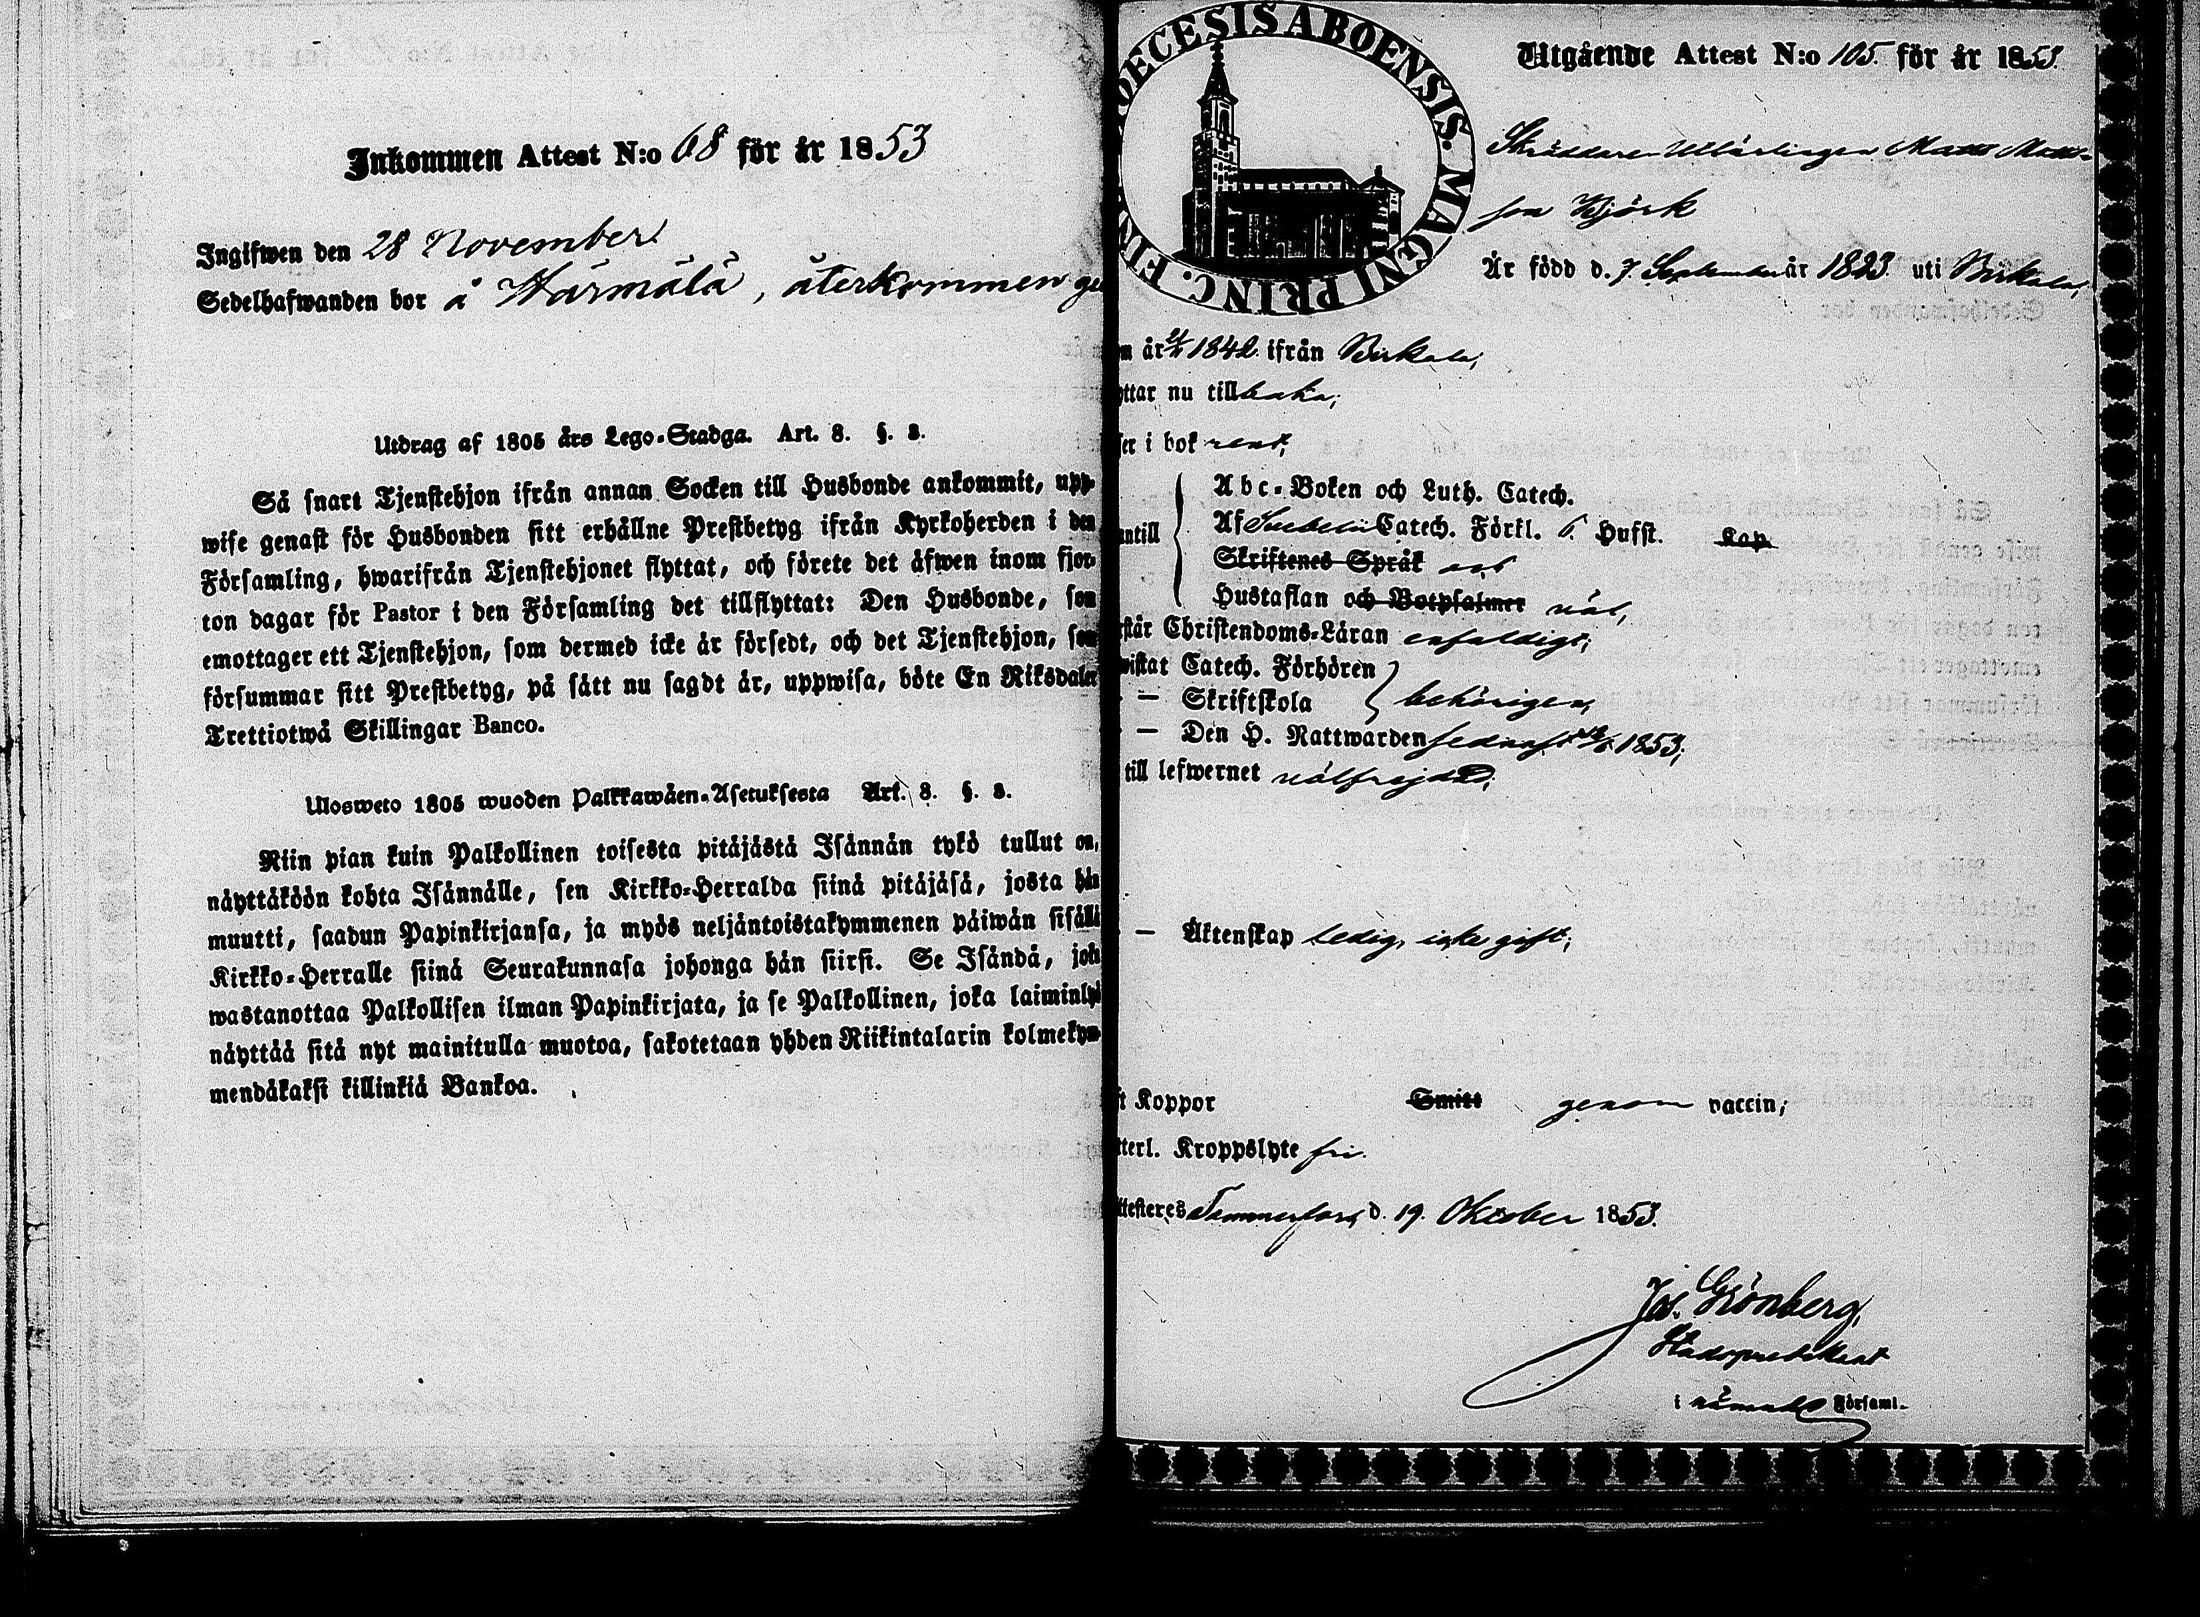 Inkommen Attest N:o 68 för år 1853
Ingifwen den 28 November
Sedelhafwanden bor å Härmälä, återkommen
Utdrag af 1805 års Lego-Stadga. Art. 8. §. 3.
Så snart Tjenstehjon ifrån annan Socken till Husbonde ankommit, upp-
wise genast för Husbonden sitt erhållne Prestbetyg ifrån Kyrkoherden i den
Församling, hwarifrån Tjenstehjonet flyttat, och förete det äfwen inom fjor-
ton dagar för Pastor i den Församling det tillflyttat: Den Husbonde, som
emottager ett Tjenstehjon, som dermed icke är försedt, och det Tjenstehjon, som
försummar sitt Prestbetyg, på sätt nu sagdt är, uppwisa, böte En Riksdaler
Trettiotwå Skillingar Banco.
Ulosweto 1805 wuoden Palkkawäen-Asetuksesta Art. 8. §. 3.
Niin pian kuin Palkollinen toisesta pitäjästä Isännän tykö tullut on,
näyttäköön kohta Isännälle, sen Kirkko-Herralda siinä pitäjäsä, josta hän
muutti, saadun Papinkirjansa, ja myös neljäntoistakymmenen päiwän sisällä
Kirkko-Herralle siinä Seurakunnasa johonga hän siirsi. Se Isändä, joka
wastanottaa Palkollisen ilman Papinkirjata, ja se Palkollinen, joka laiminlyö
näyttää sitä nyt mainitulla muotoa, sakotetaan yhden Riikintalarin kolmekym-
mendäkaksi killinkiä Bankoa.
DECESISABOENSIS. MAGNI PRINC. FIN
Utgående Attest N:o 105. för år 1853.
Skräddare Utlärlingen Matts Matts-
son Björk
Är född d. 7. September år 1823 uti Birkala,
år 1842. ifrån Birkala;
ttar nu tillbaka;
i bok rent,
antill
Abc-Boken och Luth. Catech.
Af Svebelii Catech. Förkl. 6. Hufst. Kap
Skriftenes Språk och
Hustaflan och Botpsalmer väl,
står Christendoms-Läran enfaldigt;
wistat Catech. Förhören
— Skriftskola
behörigen,
— Den H. Nattwarden sednast 1853;
till lefwernet välfrejdad;
— Äktenskap ledig, icke gift;
t Koppor Smitt genom vaccin;
tterl. Kroppslyte fri.
ttesteres Tammerfors, d. 19. Oktober 1853.
Jos. Grönberg,
Stadspredikant
i nämnde Församl.